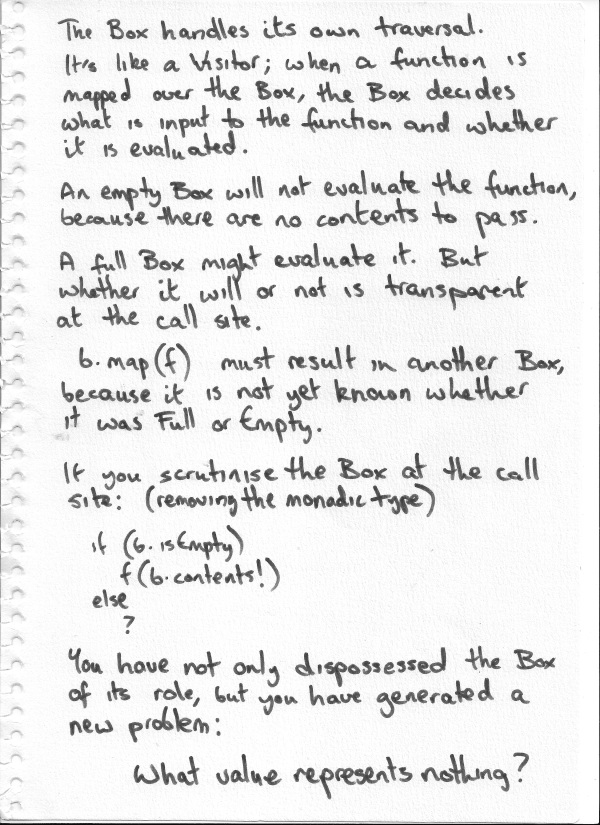 The Box handles its own traversal.
It's like a Visitor; when a function is
mapped over the Box, the Box decides
what is input to the function and whether
it is evaluated.
An empty Box will not evaluate the function,
because there are no contents to pass.
A full Box might evaluate it. But
whether it will or not is transparent
at the call site.
b.map(f) must result in another Box,
because it is not yet known whether
it was Full or Empty.
If you scrutinise the Box at the call
site: (removing the monadic type)
if (b.isEmpty)
f(b.contents!)
else
?
You have not only dispossessed the Box
of its role, but you have generated a
new problem:
What value represents nothing?